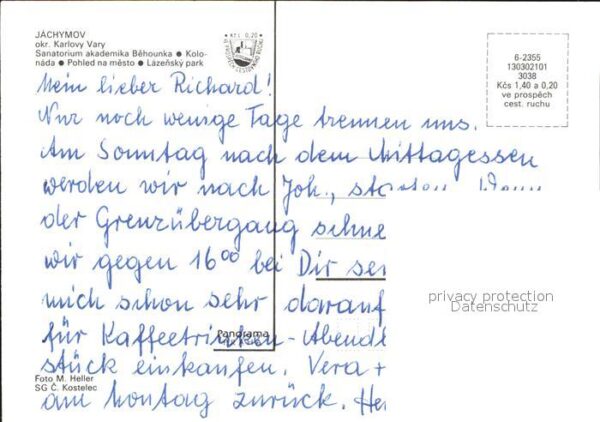 JÁCHYMOV
okr. Karlovy Vary
Sanatorium akademika Běhounka ● Kolo-
náda ● Pohled na město ● Lázeňský park
Kčs 0,20
6-2355
130302101
3038
Kčs 1,40 a 0,20
ve prospěch
cest. ruchu
Mein lieber Richard!
Nur noch wenige Tage trennen uns.
Am Sonntag nach dem Mittagessen
werden wir nach Joh., starten. Wenn
der Grenzübergang schne
wir gegen 16⁰⁰ bei Dir sei
mich schon sehr darauf
für Kaffeetrinken - Abend
stück einkaufen. Vera +
am Montag zurück. He
privacy protection
Datenschutz
Panorama
Foto M. Heller
SG Č. Kostelec